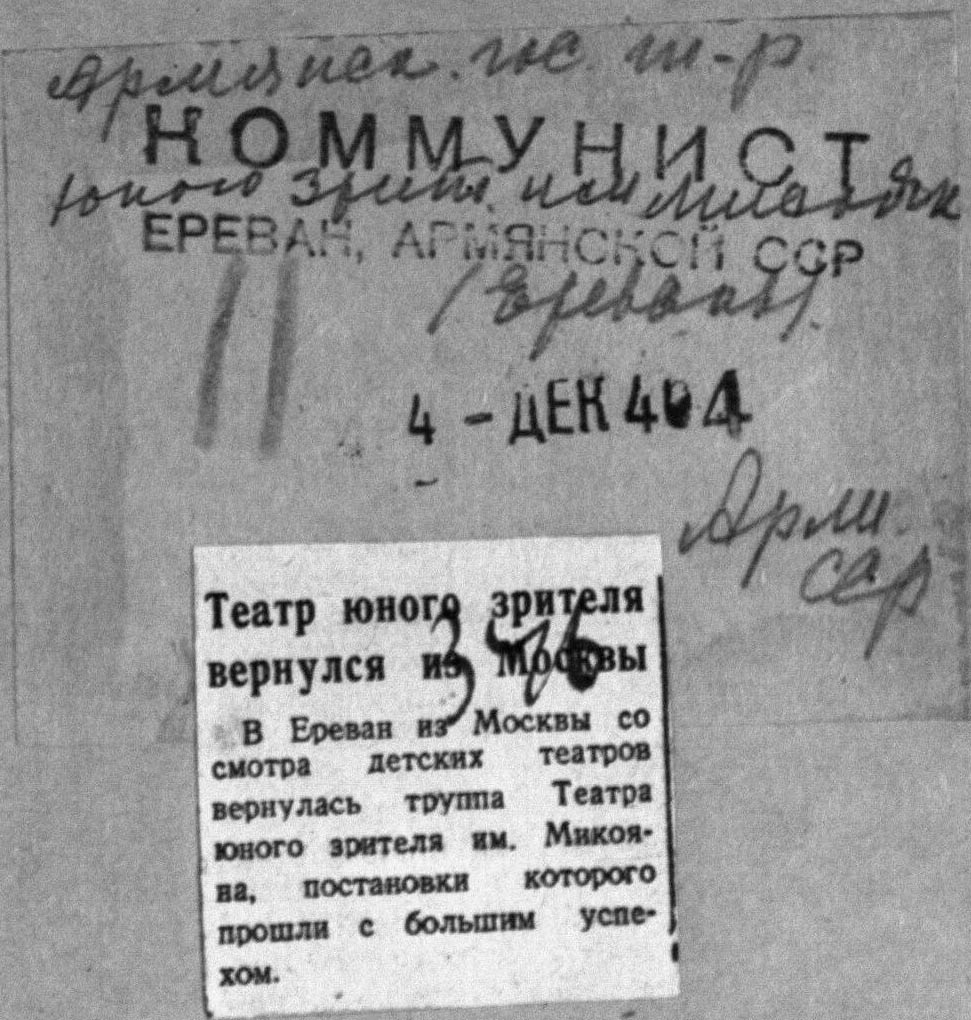 Армянск. гос. т-р.
КОММУНИСТ
юного зрит. им.
ЕРЕВАН, АРМЯНСКОЙ ССР
/Ереван/.
4 - ДЕК 40
Арм.
сср
Театр юного зрителя
вернулся из Москвы
В Ереван из Москвы со
смотра детских театров
вернулась труппа Театра
юного зрителя им. Микоя-
на, постановки которого
прошли с большим успе-
хом.